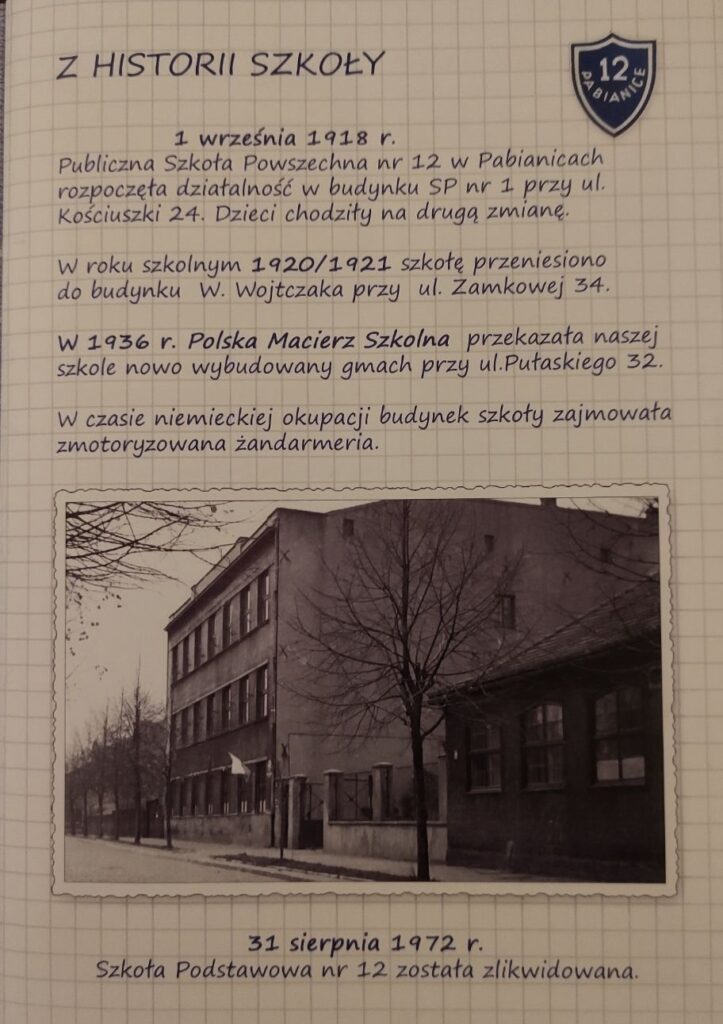 Z HISTORII SZKOŁY
12
PABIANICE
1 września 1918 r.
Publiczna Szkoła Powszechna nr 12 w Pabianicach
rozpoczęła działalność w budynku SP nr 1 przy ul.
Kościuszki 24. Dzieci chodziły na drugą zmianę.
W roku szkolnym 1920/1921 szkołę przeniesiono
do budynku W. Wojtczaka przy ul. Zamkowej 34.
W 1936 r. Polska Macierz Szkolna przekazała naszej
szkole nowo wybudowany gmach przy ul.Pułaskiego 32.
W czasie niemieckiej okupacji budynek szkoły zajmowała
zmotoryzowana żandarmeria.
31 sierpnia 1972 r.
Szkoła Podstawowa nr 12 została zlikwidowana.